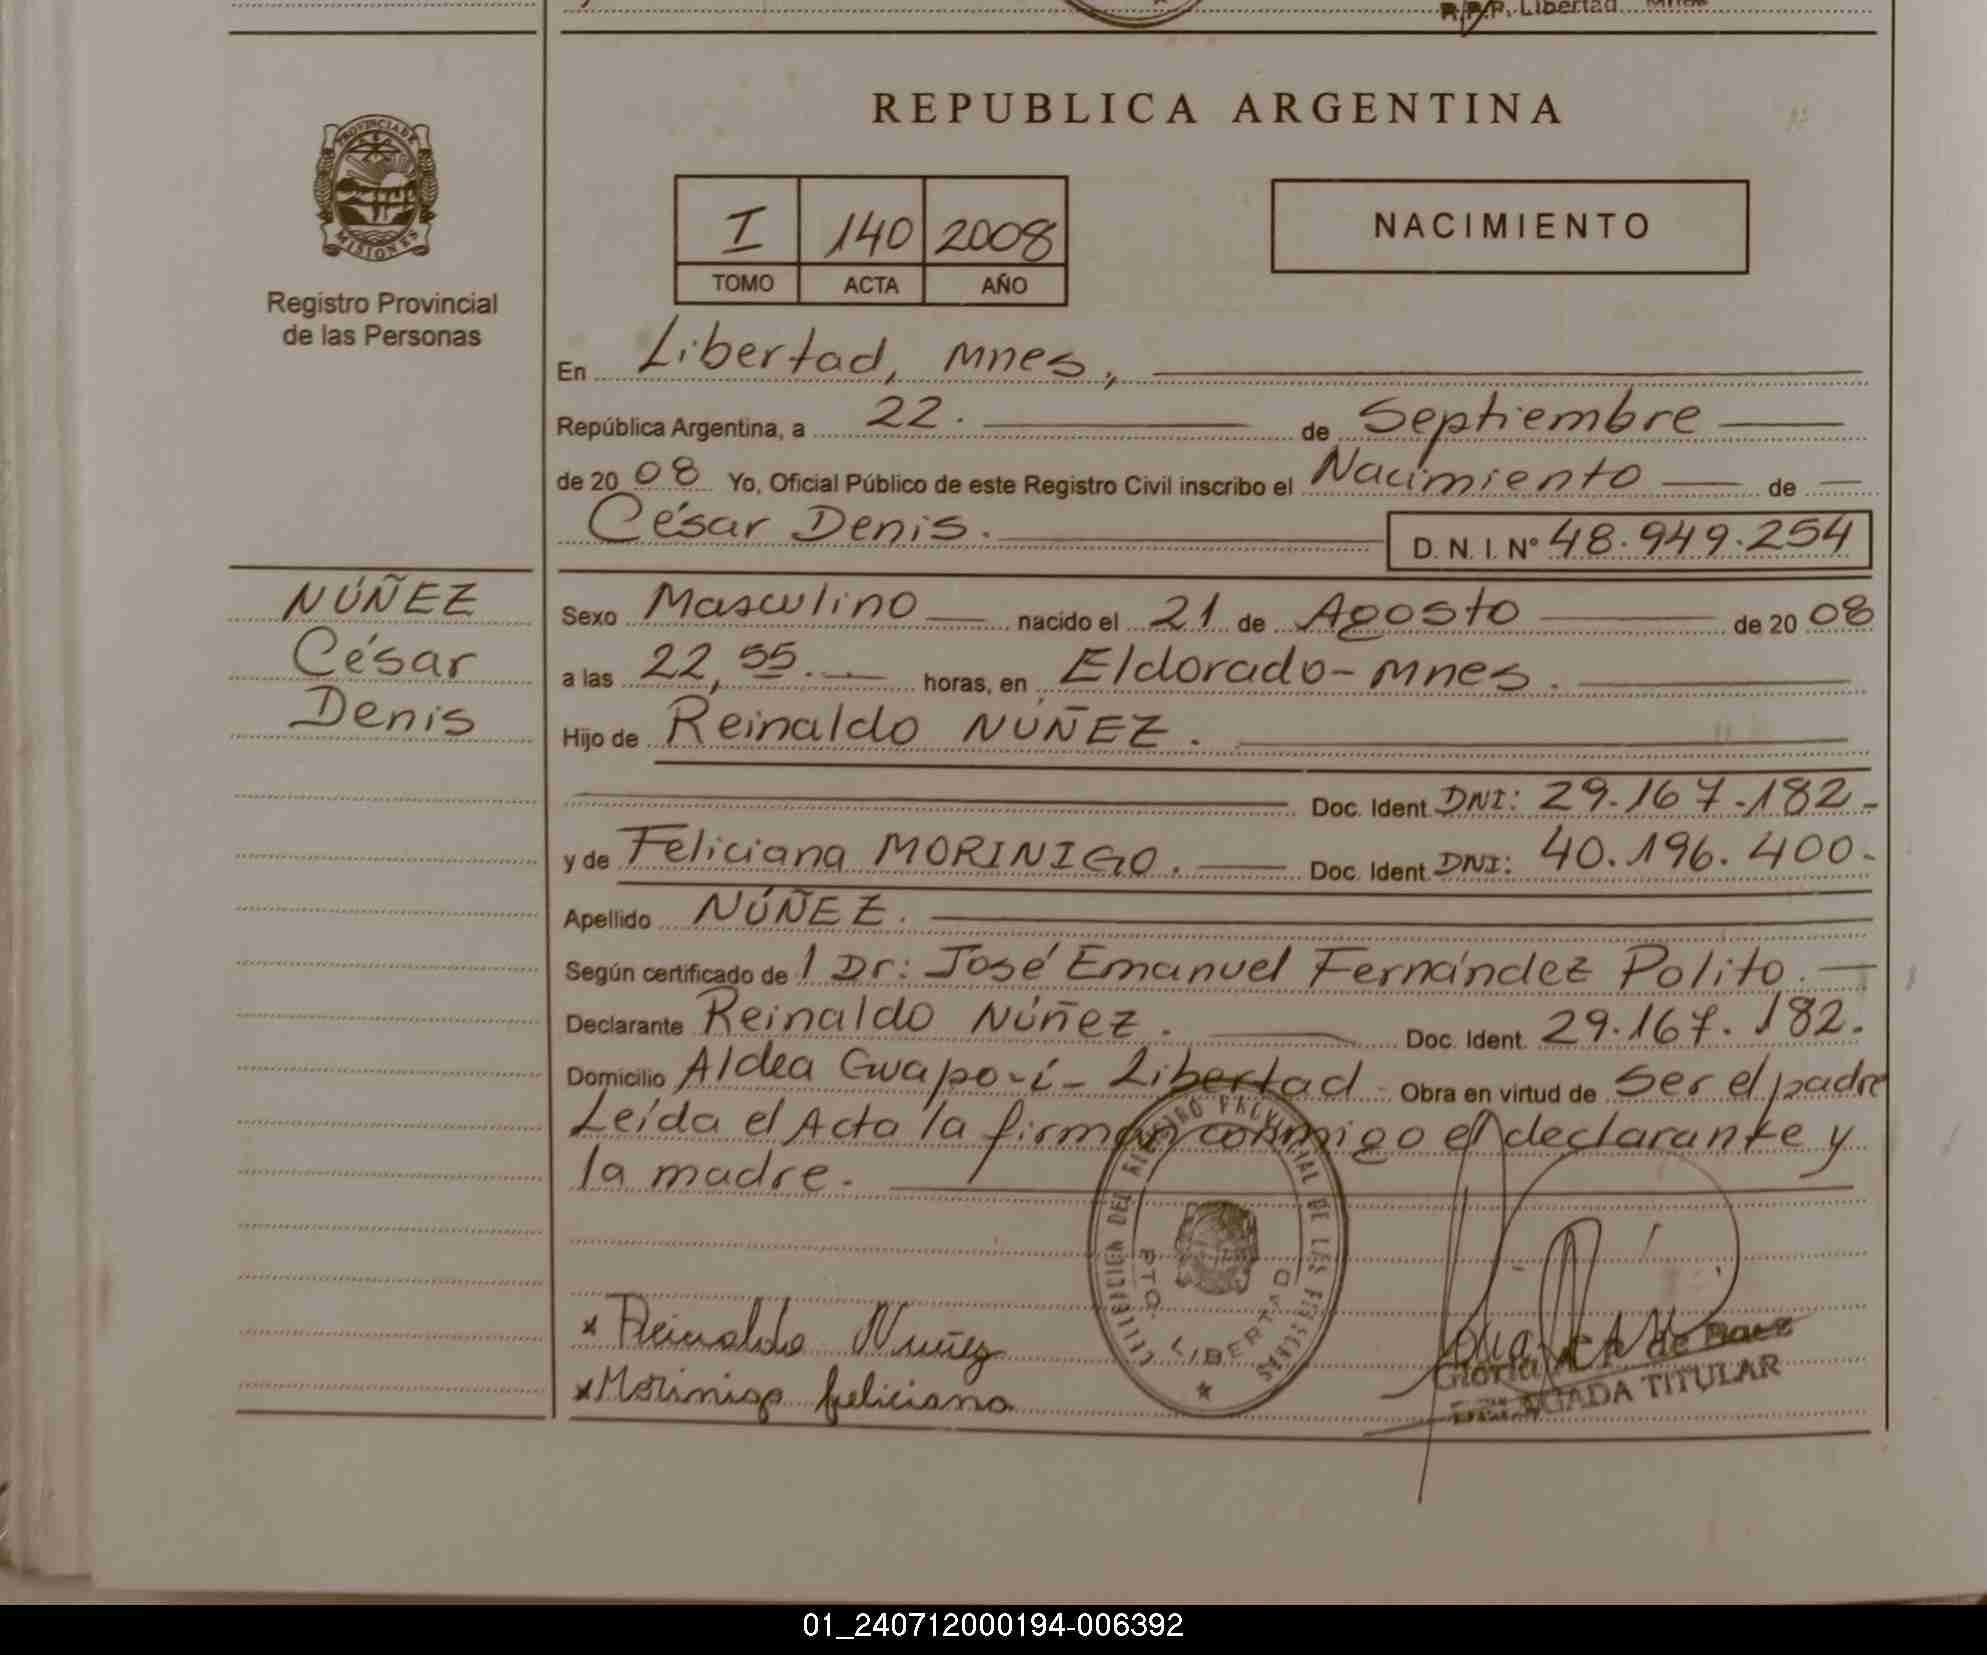 R.P.P. Libertad Mnes
REPUBLICA ARGENTINA
PROVINCIA DE MISIONES
Registro Provincial
de las Personas
I 140 2008
TOMO ACTA AÑO
NACIMIENTO
En Libertad, Mnes,
República Argentina, a 22. de Septiembre
de 20 08 Yo, Oficial Público de este Registro Civil inscribo el Nacimiento de
César Denis. D. N. I. Nº 48.949.254
NÚÑEZ
César
Denis
Sexo Masculino nacido el 21 de Agosto de 20 08
a las 22,55. horas, en Eldorado-Mnes.
Hijo de Reinaldo NÚÑEZ.
Doc. Ident. DNI: 29.167.182.-
y de Feliciana MORINIGO. Doc. Ident. DNI: 40.196.400-
Apellido NÚÑEZ.
Según certificado de l Dr: José Emanuel Fernández Polito.
Declarante Reinaldo Núñez. Doc. Ident. 29.167.182.
Domicilio Aldea Guapo-í- Libertad. Obra en virtud de Ser el padre
Leída el Acta la firman conmigo el declarante y
la madre.
DEL REGISTRO PROVINCIAL DE LAS PERSONAS
PTO. LIBERTAD
x Reinaldo Nuñez
x Morinigo feliciana
Gloria de Baez
DELEGADA TITULAR
01_240712000194-006392